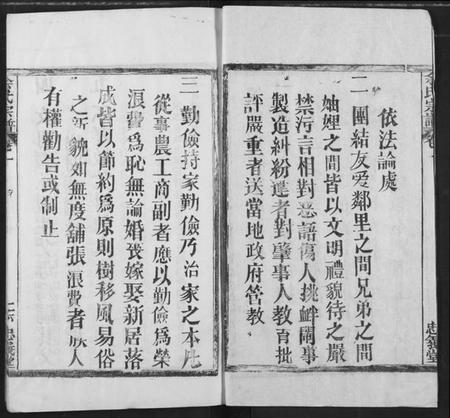 余氏宗譜
依法論處
二 團結友愛鄰里之間兄弟之間
妯娌之間皆以文明禮貌待之嚴
禁污言相對惡語傷人挑衅鬧事
製造糾紛違者對肇事人教育批
評嚴重者送當地政府管教
忠簡堂
三 勤儉持家勤儉乃治家之本凡
從事農工商副者應以勤儉為榮
浪費為恥無論婚丧嫁娶新居落
成皆以節約為原則樹移風易俗
之新貌如無度舖張浪費者族人
有權勸告或制止
余氏宗譜